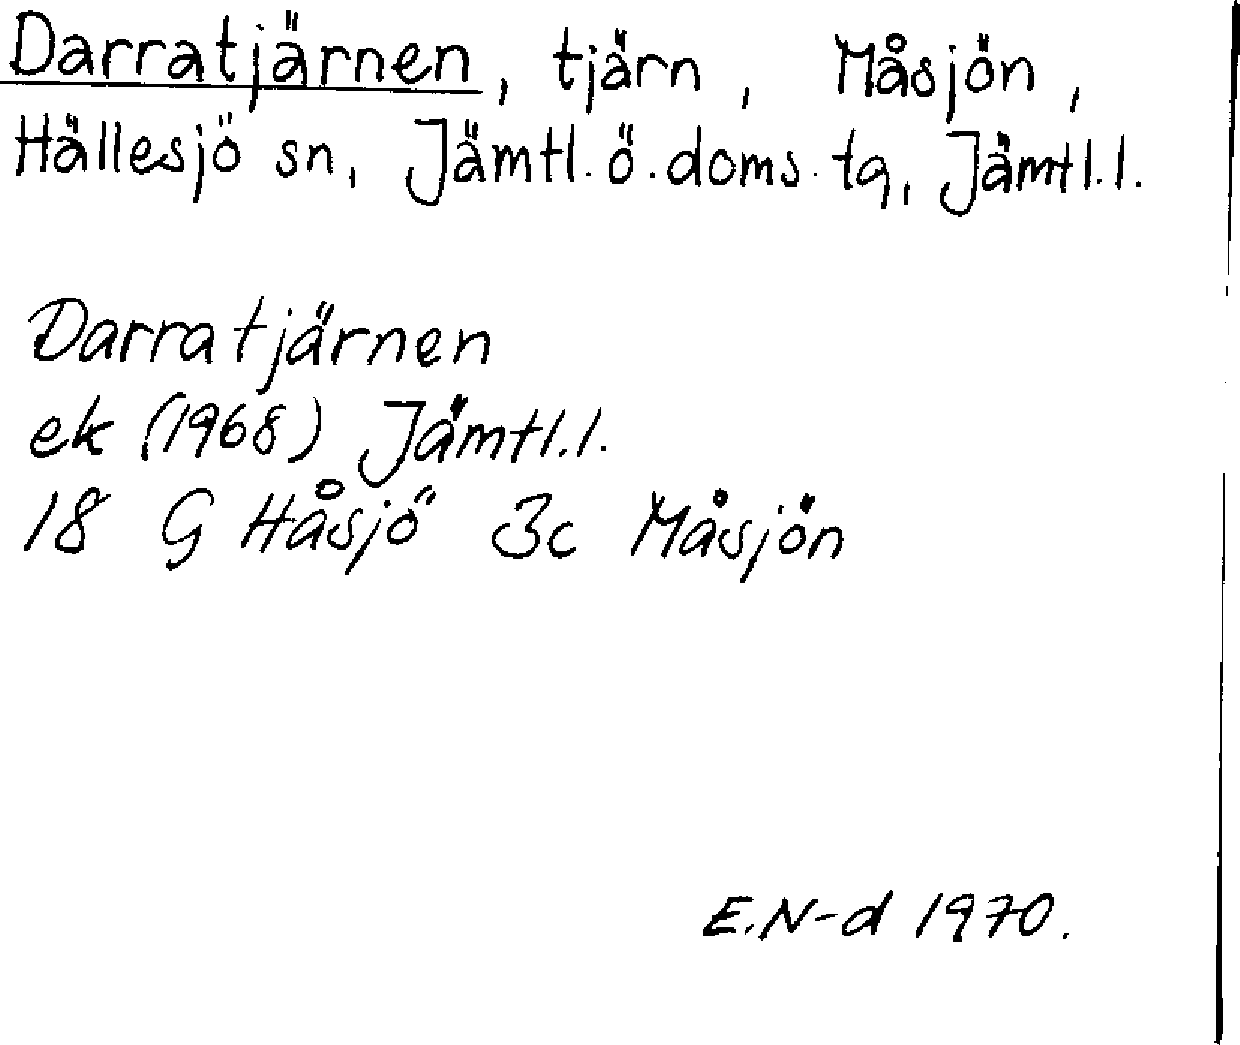 Darratjärnen, tjärn, Måsjön,
Hällesjö sn, Jämtl. ö. doms. tg, Jämtl. l.
Darratjärnen
ek (1968) Jämtl. l.
18 G Håsjö 3c Måsjön
E. N-d 1970.